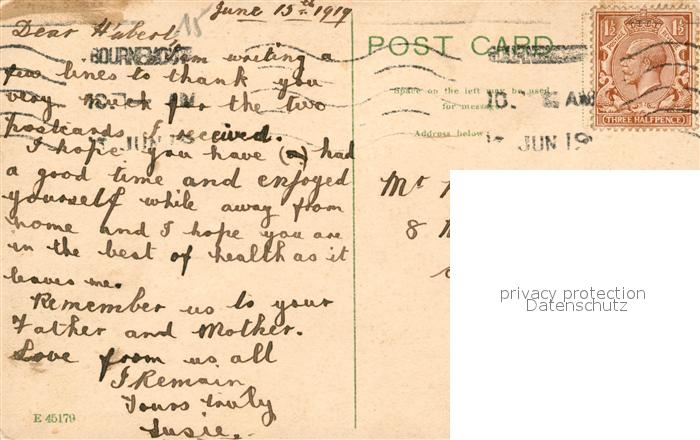 June 15th 1919
15
Dear Hubert
I am writing a
few lines to thank you
very much for the two
postcards I received.
I hope you have (a) had
a good time and enjoyed
yourself while away from
home and I hope you are
in the best of health as it
leaves me.
Remember us to your
Father and Mother.
Love from us all
I Remain
Yours truly
Susie.
E 45179
BOURNEMOUTH
AM
JUN 19
POST CARD
Space on the left may be used
for message.
Address below:
AM
JUN 19
1½ 1½
THREE HALFPENCE
Mr
8
privacy protection
Datenschutz